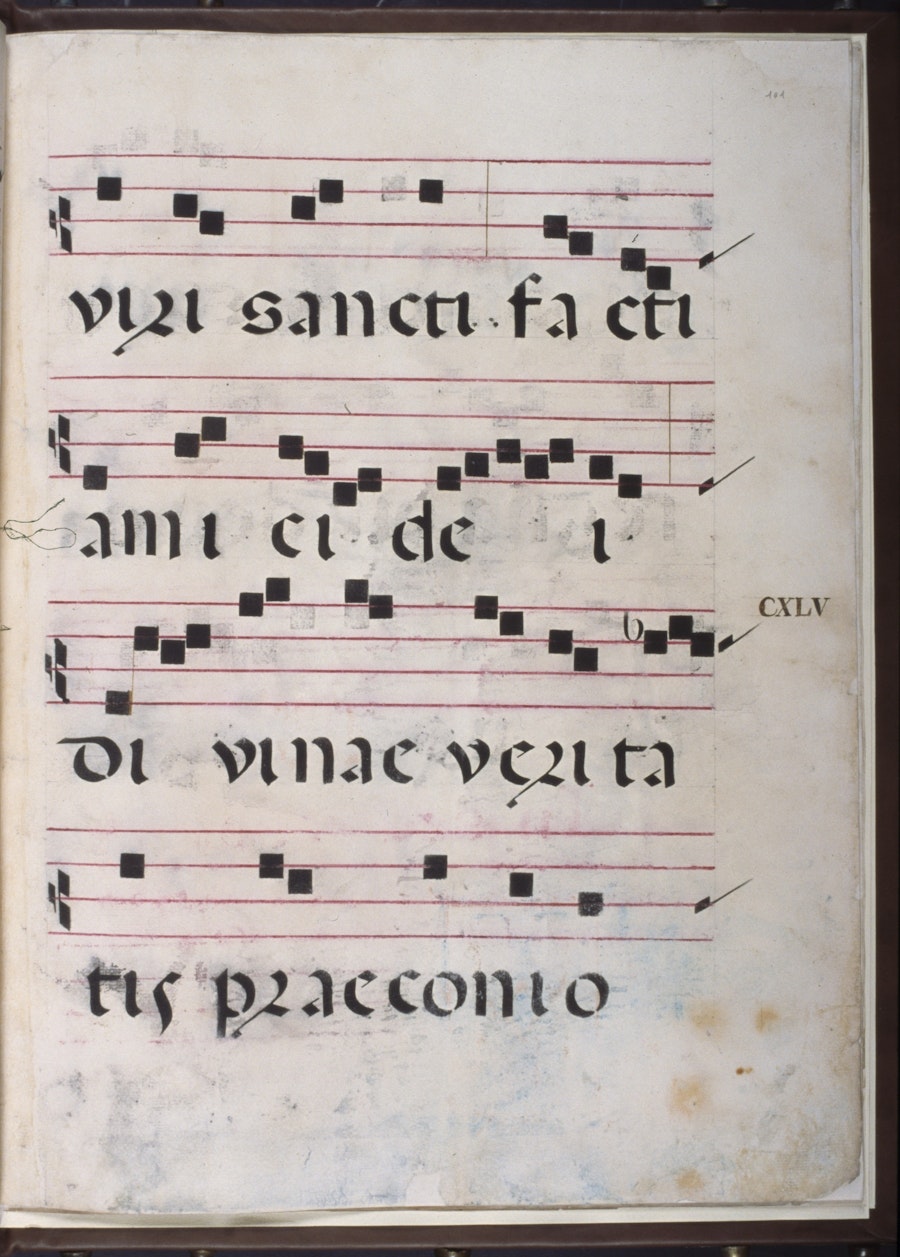 101
viri sancti. fa cti
ami ci de i.
CXLV
b
di vinae verita
tis praeconio